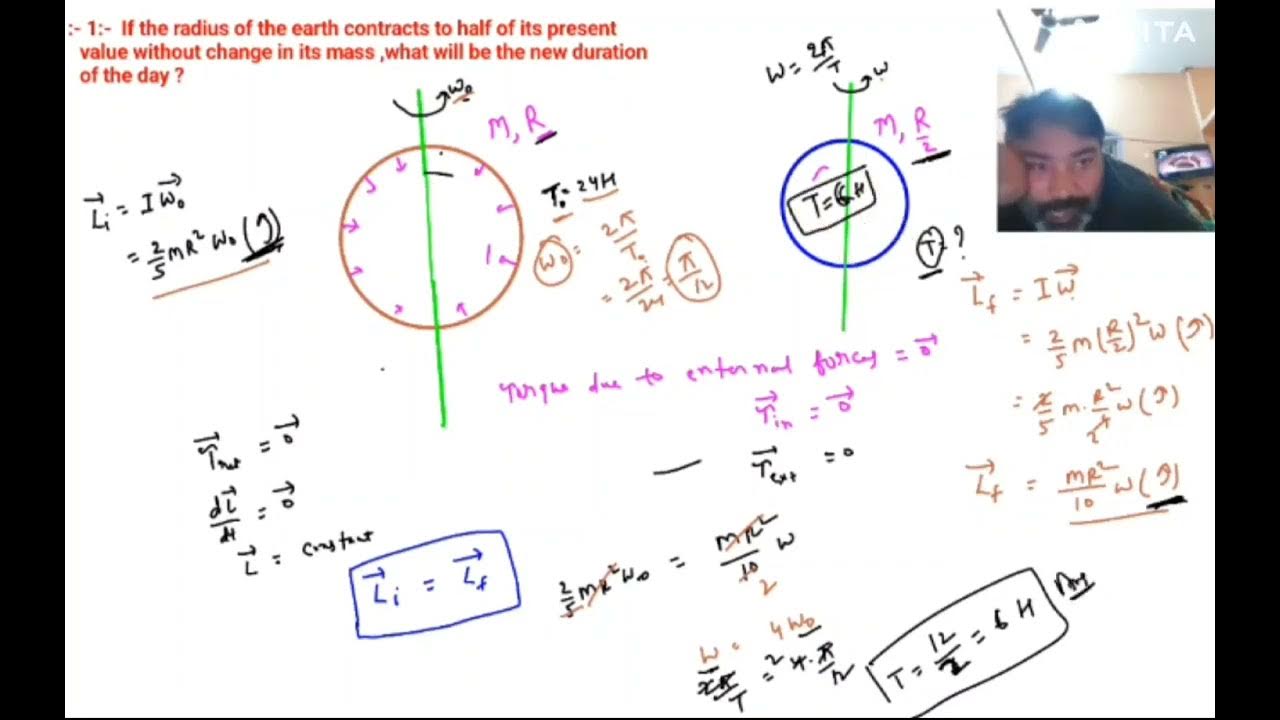 :- 1:- If the radius of the earth contracts to half of its present
value without change in its mass ,what will be the new duration
of the day ?
ω₀
M, R
T₀ = 24H
ω₀ = 2π/T₀
= 2π/24 = π/12
L⃗i = I ω⃗₀
= 2/5 mR² ω₀ (↺)
ω = 2π/T
ω
M, R/2
T = 6H
T = ?
L⃗f = I ω⃗
= 2/5 m (R/2)² ω (↺)
= 2/5 m · R²/4 ω (↺)
L⃗f = mR²/10 ω (↺)
Torque due to external forces = 0⃗
τ⃗in = 0⃗
τ⃗ext = 0
τ⃗net = 0⃗
dL⃗/dt = 0⃗
L⃗ = constant
L⃗i = L⃗f
2/5 mR² ω₀ = mR²/10 ω
2
ω = 4ω₀
2π/T = 4 · π/12
T = 12/2 = 6 H
Ans
ITA